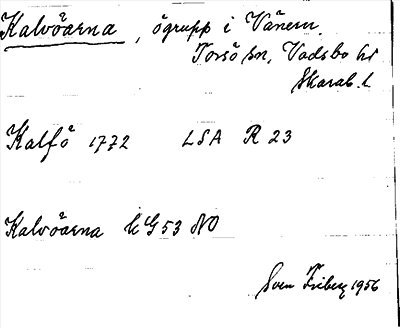 Kalvöarna, ögrupp i Vänern.
Torsö sn, Vadsbo hd
Skarab. l.
Kalfö 1772 LSA R 23
Kalvöarna EG 53 NO
Sven Friberg 1956